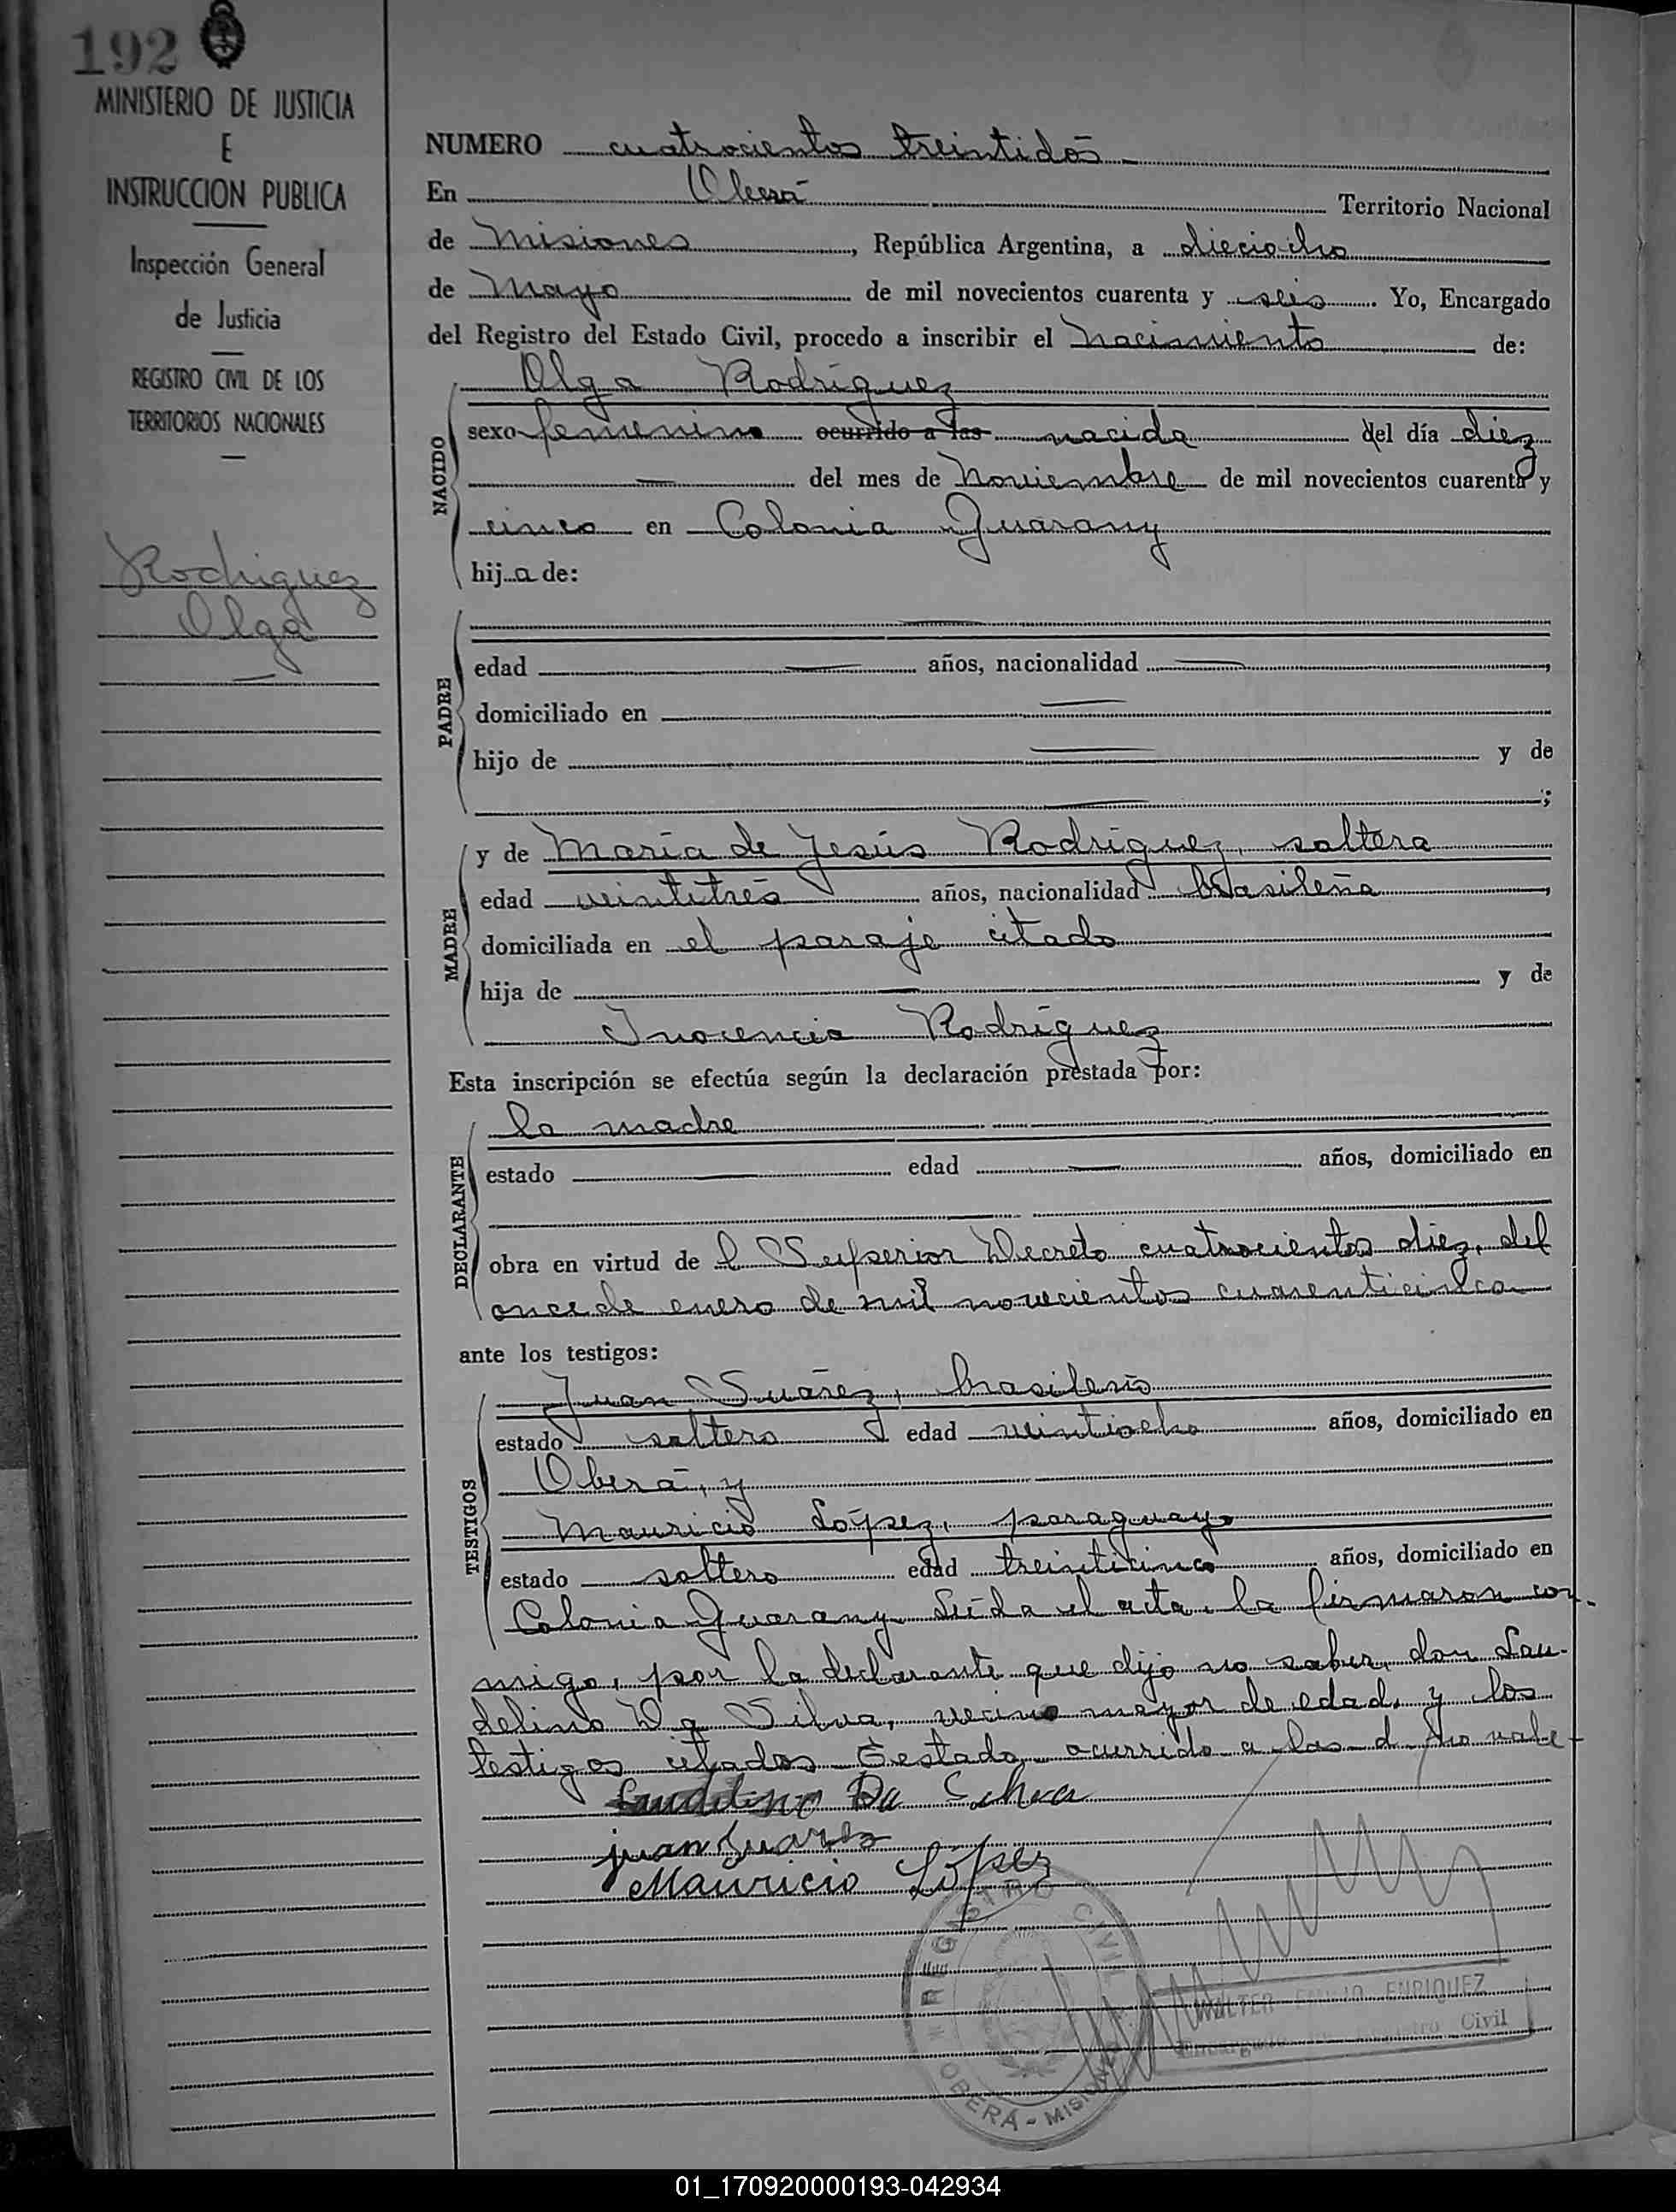 192
MINISTERIO DE JUSTICIA
E
INSTRUCCION PUBLICA
Inspección General
de Justicia
REGISTRO CIVIL DE LOS
TERRITORIOS NACIONALES
Rodriguez
Olga
NUMERO cuatrocientos treintidós
En Oberá Territorio Nacional
de Misiones, República Argentina, a dieciocho
de Mayo de mil novecientos cuarenta y seis. Yo, Encargado
del Registro del Estado Civil, procedo a inscribir el nacimiento de:
NACIDO
Olga Rodríguez
sexo femenino ocurrido a las nacida del día diez
del mes de Noviembre de mil novecientos cuarenta y
cinco en Colonia Guarany
hija de:
PADRE
edad años, nacionalidad ,
domiciliado en
hijo de y de
;
MADRE
y de María de Jesús Rodríguez, soltera
edad veintitrés años, nacionalidad brasileña,
domiciliada en el paraje citado
hija de y de
Inocencia Rodríguez
Esta inscripción se efectúa según la declaración prestada por:
DECLARANTE
la madre
estado edad años, domiciliado en
obra en virtud de l Superior Decreto cuatrocientos diez, del
once de enero de mil novecientos cuarenticinco
ante los testigos:
TESTIGOS
Juan Suárez, brasileño
estado soltero edad veintiocho años, domiciliado en
Oberá, y
Mauricio López, paraguayo
estado soltero edad treinticinco años, domiciliado en
Colonia Guarany. Leída el acta, la firmaron con-
migo, por la declarante que dijo no saber, don Lau-
delino Da Silva, vecino mayor de edad, y los
testigos citados. Testado ocurrido a las d No vale-
Laudelino Da Silva
juan Suarez
Mauricio López
REGISTRO CIVIL
OBERÁ - MISIONES
WALTER EMILIO ENRIQUEZ
Encargado Registro Civil
01_170920000193-042934